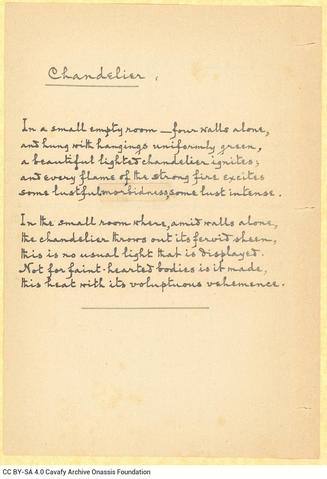 Chandelier.
In a small empty room — four walls alone,
and hung with hangings uniformly green,
a beautiful lighted chandelier ignites;
and every flame of the strong fire excites
some lustful morbidness, some lust intense.
In the small room where, amid walls alone,
the chandelier throws out its fervid sheen,
this is no usual light that is displayed.
Not for faint-hearted bodies is it made,
this heat with its voluptuous vehemence.
CC BY-SA 4.0 Cavafy Archive Onassis Foundation